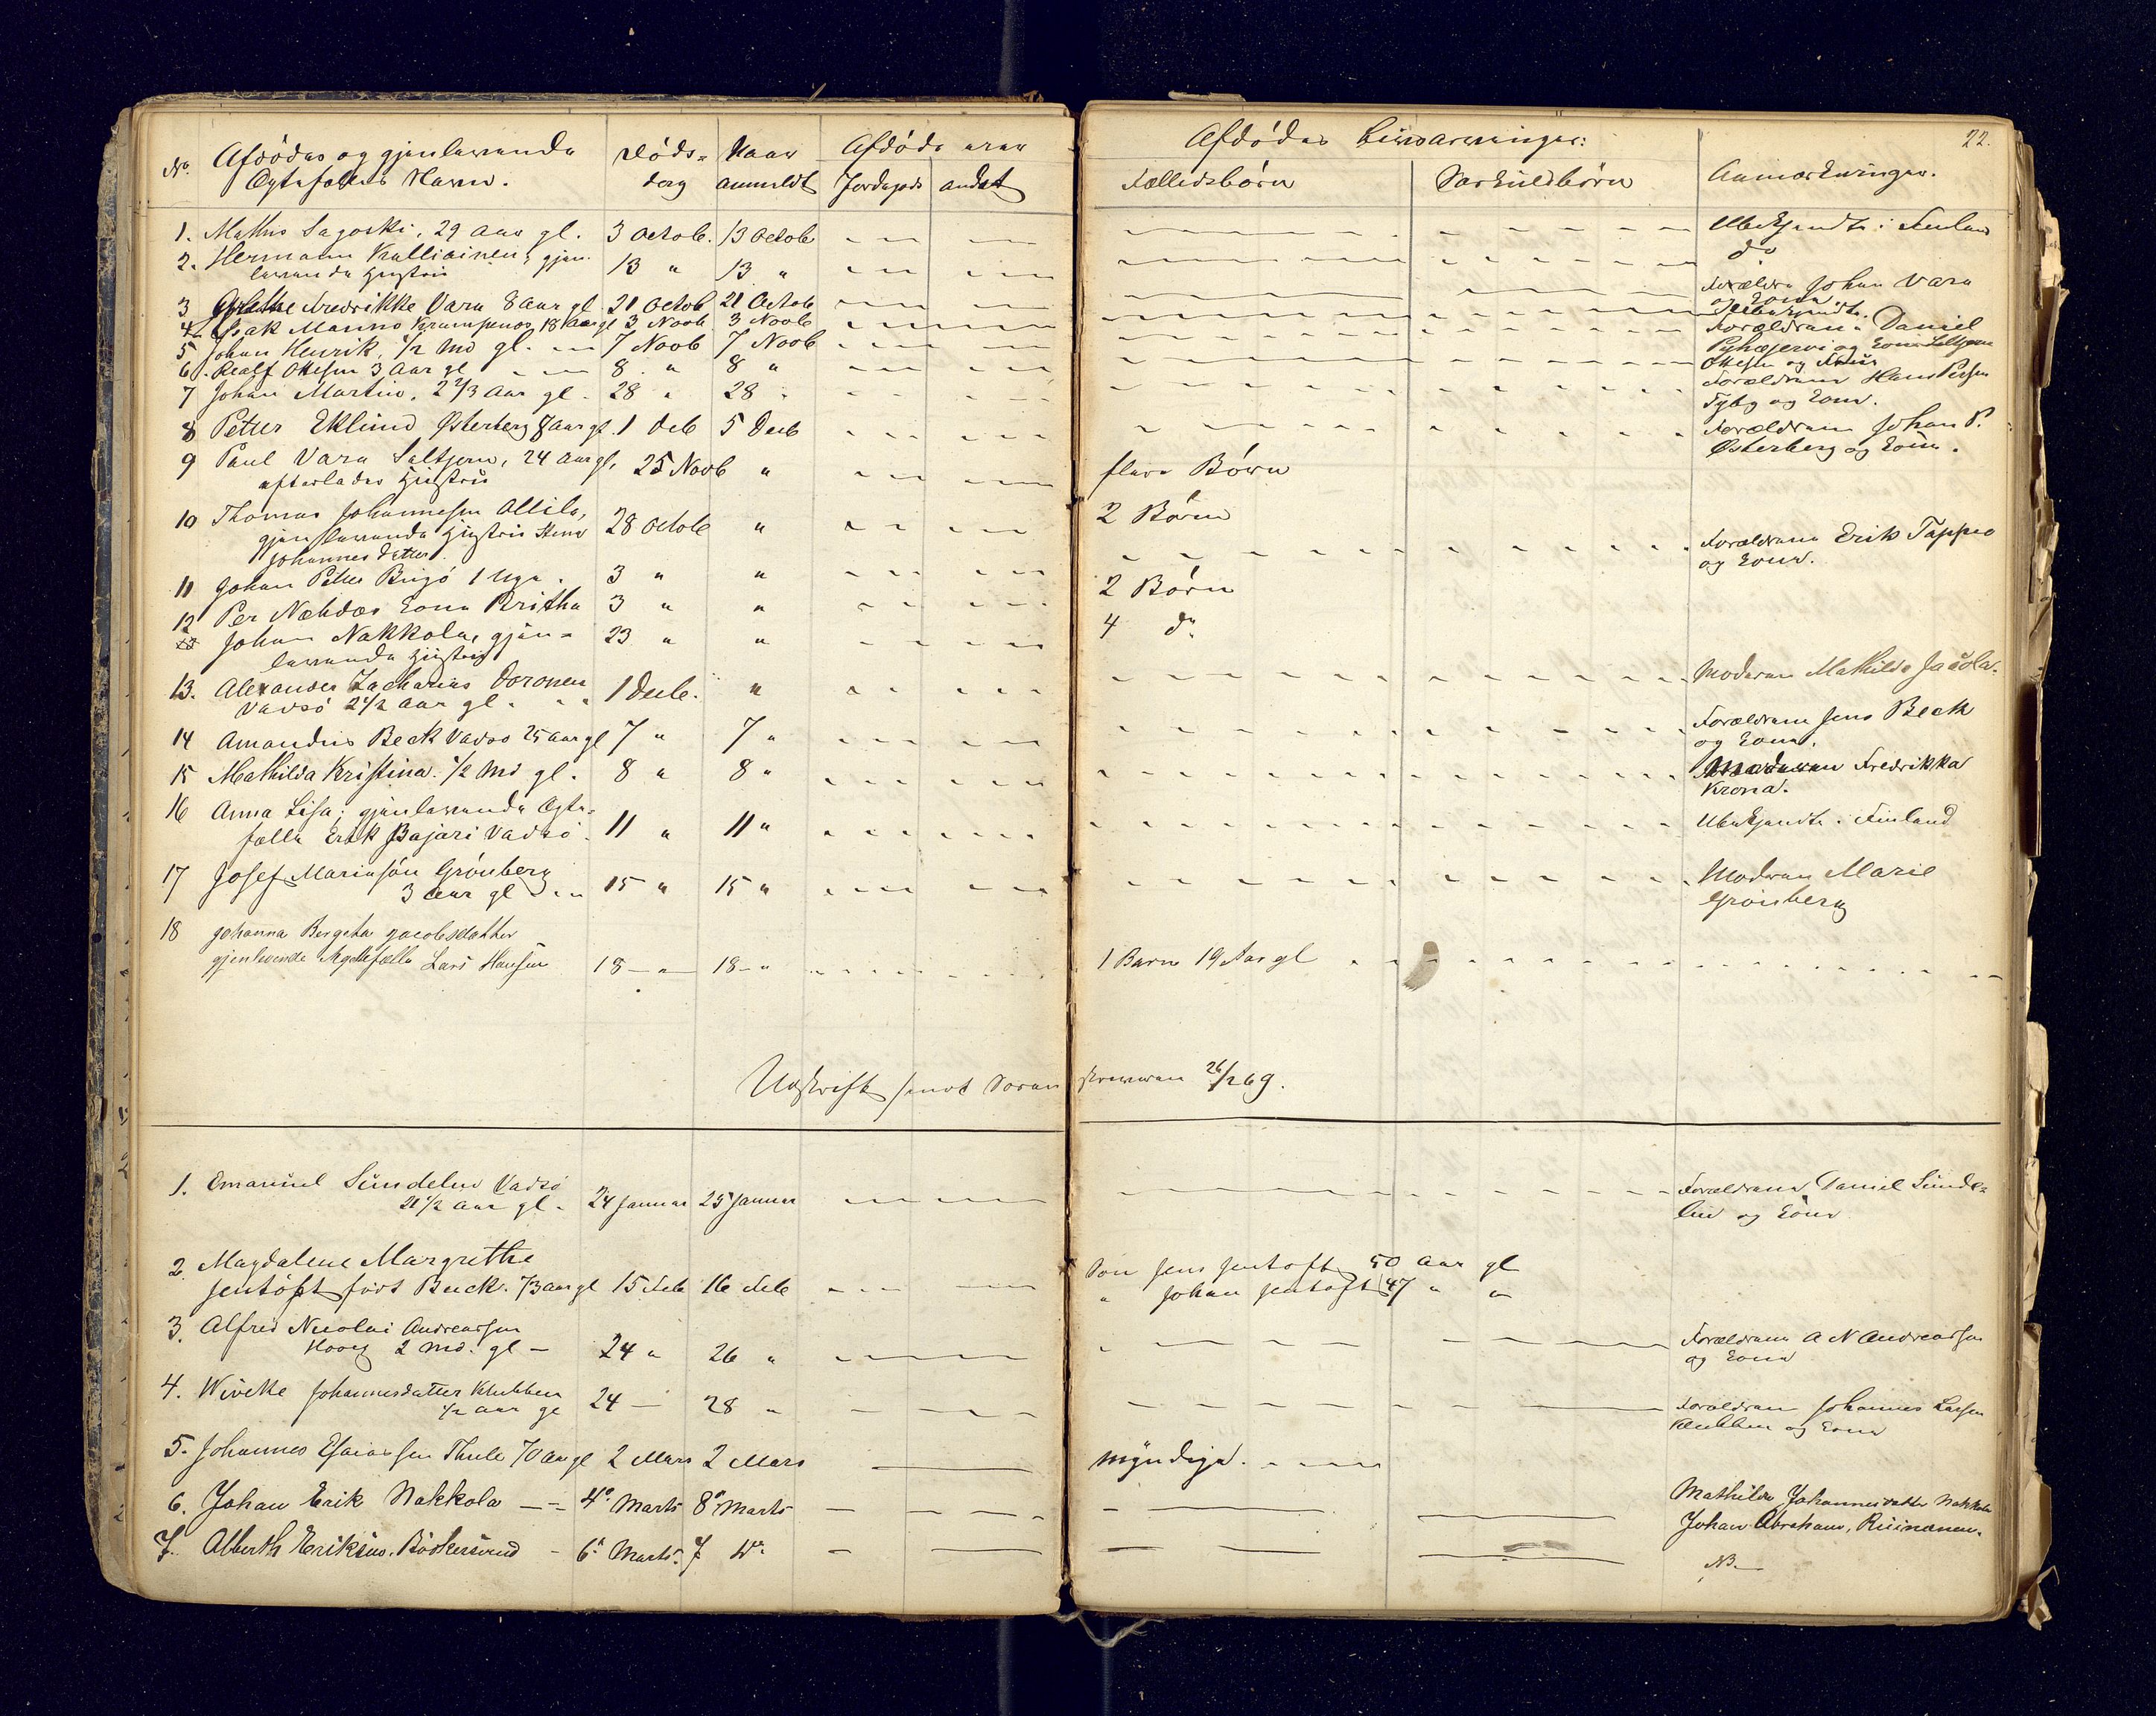 22.
No. Afdödes og gjenlevende Ægtefælles Navn. Döds- dag Naar anmeldt Afdöde eier Jordegods andet
Afdödes Livsarvinger: Fælledsbörn Særkuldbörn Anmærkninger.
1. Mathis Sagoski, 29 Aar gl. 3 Octob. 13 Octob
Ubekjendte i Finland
2. Hermann Kalliainen, gjen-
levende Hustru 13 " 13 "
do
3 Grethe Fredrikke Vara 8 Aar gl 21 Octob 21 Octob
Forældre Johan Vara
og Kone.
4 Isak Manno Krumpenes, 18 Aar gl 3 Novb 3 Novb
Ubekjendte.
5 Johan Henrik, 1/2 Md gl. 7 Novb 7 Novb
Forældrene Daniel
Pyhæjervi og Kone
6. Realf Ottesen 3 Aar gl 8 " 8 "
Ottesen og Frue
7 Johan Martin, 2 2/3 Aar gl. 28 " 28 "
Forældrene Hans Persen
Tyby og Kone.
8 Petter Eklund Østerberg 8 Aar gl. 1 Deb 5 Decb
Forældrene Johan P.
Østerberg og Kone.
9 Paul Vara Saltjern, 24 Aar gl,
efterlades Hustru 25 Novb "
flere Börn
10 Thomas Johannesen Allila,
gjenlevende Hustru Stina
Johannesdatter. 28 Octob "
2 Börn
11 Johan Petter Bugö 1 Uge. 3 " "
Forældrene Erik Tappio
og Kone.
12 Per Næhdas Kone Britha 3 " "
2 Börn
Johan Nakkola, gjen-
levende Hustru 23 " "
4 do
13. Alexander Zacharias Doronen
Vadsö 2 1/2 Aar gl. 1 Decb. "
Moderen Mathilde
14 Amandus Beck Vadsö 25 Aar gl 7 " 7 "
Forældrene Jens Beck
og Kone.
15 Mathilda Kristina. 1/2 Md gl. 8 " 8 "
Moderen Fredrikka
Krona.
16 Anna Lisa; gjenlevende Ægte-
fælle Erik Bajari Vadsö. 11 " 11 "
Ubekjendte i Finland
17 Josef Mariasön Grönberg
3 Aar gl 15 " 15 "
Moderen Marie
Grönberg
18 Johanna Bergeta Jacobsdatter
gjenlevende Ægtefælle Lars Hansen 18 - " - 18 - "
1 Barn 19 Aar gl
Udskrift sendt Sorenskriveren 26/1 69.
1. Emanuel Sundelin Vadsö
21 1/2 Aar gl. 24 Januar 25 Januar
Forældrene Daniel Sunde-
lin og Kone
2. Magdalene Margrethe
Jentoft födt Buck. 73 Aar gl 15 Feb 16 Feb
Sön Jens Jentoft 50 Aar gl
" Johan Jentoft 47 " "
3. Alfred Nicolai Andreassen
2 Md. gl - 24 " 26 "
Forældrene A N Andreassen
og Kone
4. Wiveke Johannesdatter Klubben
1/2 Aar gl 24 - 28 "
Forældrene Johannes Larsen
Klubben og Kone
5. Johannes Esaiassen Thule 70 Aar gl 2 Mars 2 Mars
myndige.
6. Johan Erik Nakkola 4de Marts 8de Marts
Mathilde Johannesdatter Nakkola
Johan Abraham,
7. Alberth Eriksen. 6te Marts. 7 do
NB.